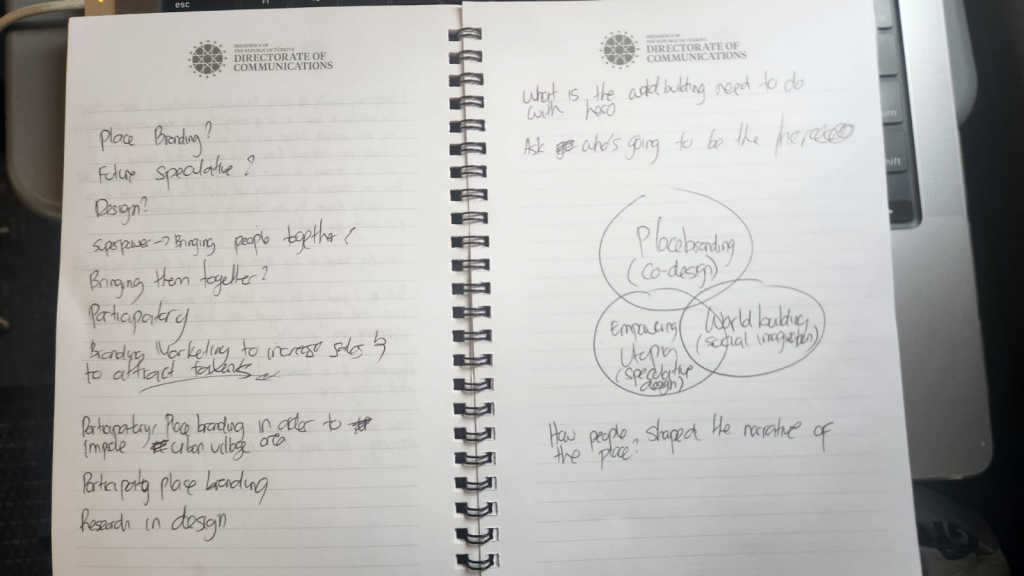 esc
PRESIDENCY OF
THE REPUBLIC OF TÜRKİYE
DIRECTORATE OF
COMMUNICATIONS
Place Branding?
Future Speculative?
Design?
Superpower → Bringing people together?
Bringing them together?
Participatory
Branding Marketing to increase sales &
to attract talents
Participatory, Place branding in order to
urban village area
Participatory place branding
Research in design
PRESIDENCY OF
THE REPUBLIC OF TÜRKİYE
DIRECTORATE OF
COMMUNICATIONS
What is the building need to do
with
Ask who's going to be the
Placebranding
(co-design)
Utopia
(speculative
design)
World building
(social imagination)
How people shaped the narrative of
the place?
shift